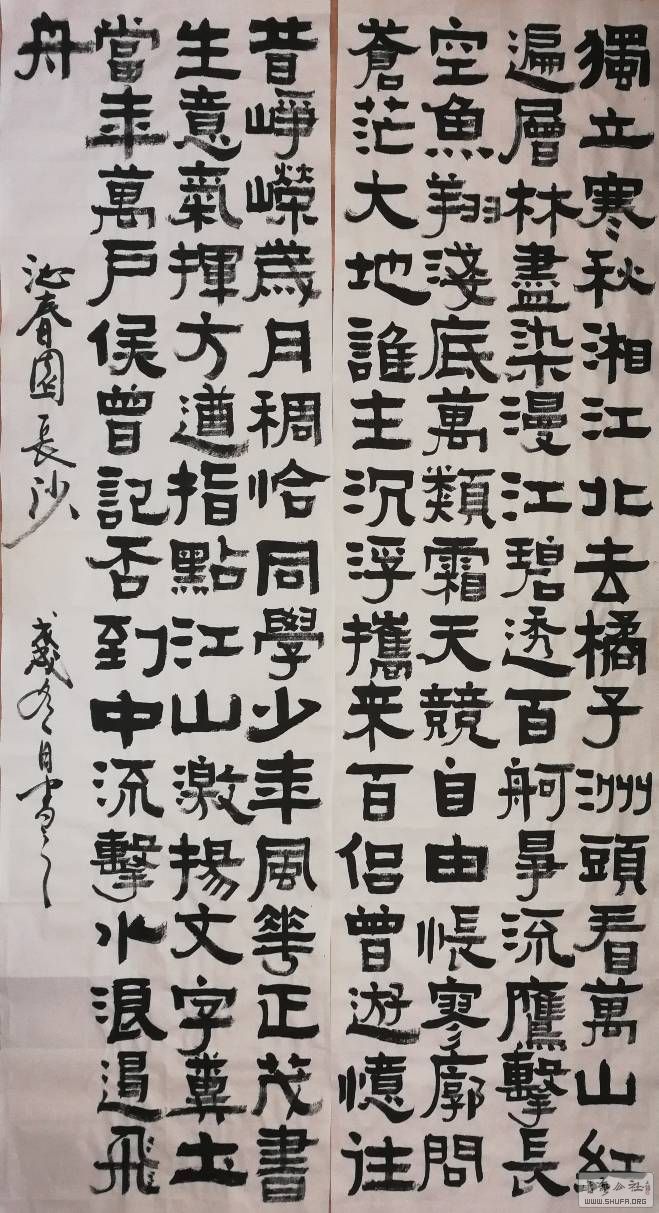 獨立寒秋湘江北去橘子洲頭看萬山紅
遍層林盡染漫江碧透百舸爭流鷹擊長
空魚翔淺底萬類霜天競自由悵寥廓問
蒼茫大地誰主沉浮攜來百侶曾遊憶往
昔崢嶸歲月稠恰同學少年風華正茂書
生意氣揮方遒指點江山激揚文字糞土
當年萬戶侯曾記否到中流擊水浪遏飛
舟
沁春園長沙
戊戌冬月書之
WWW.SHUFA.ORG